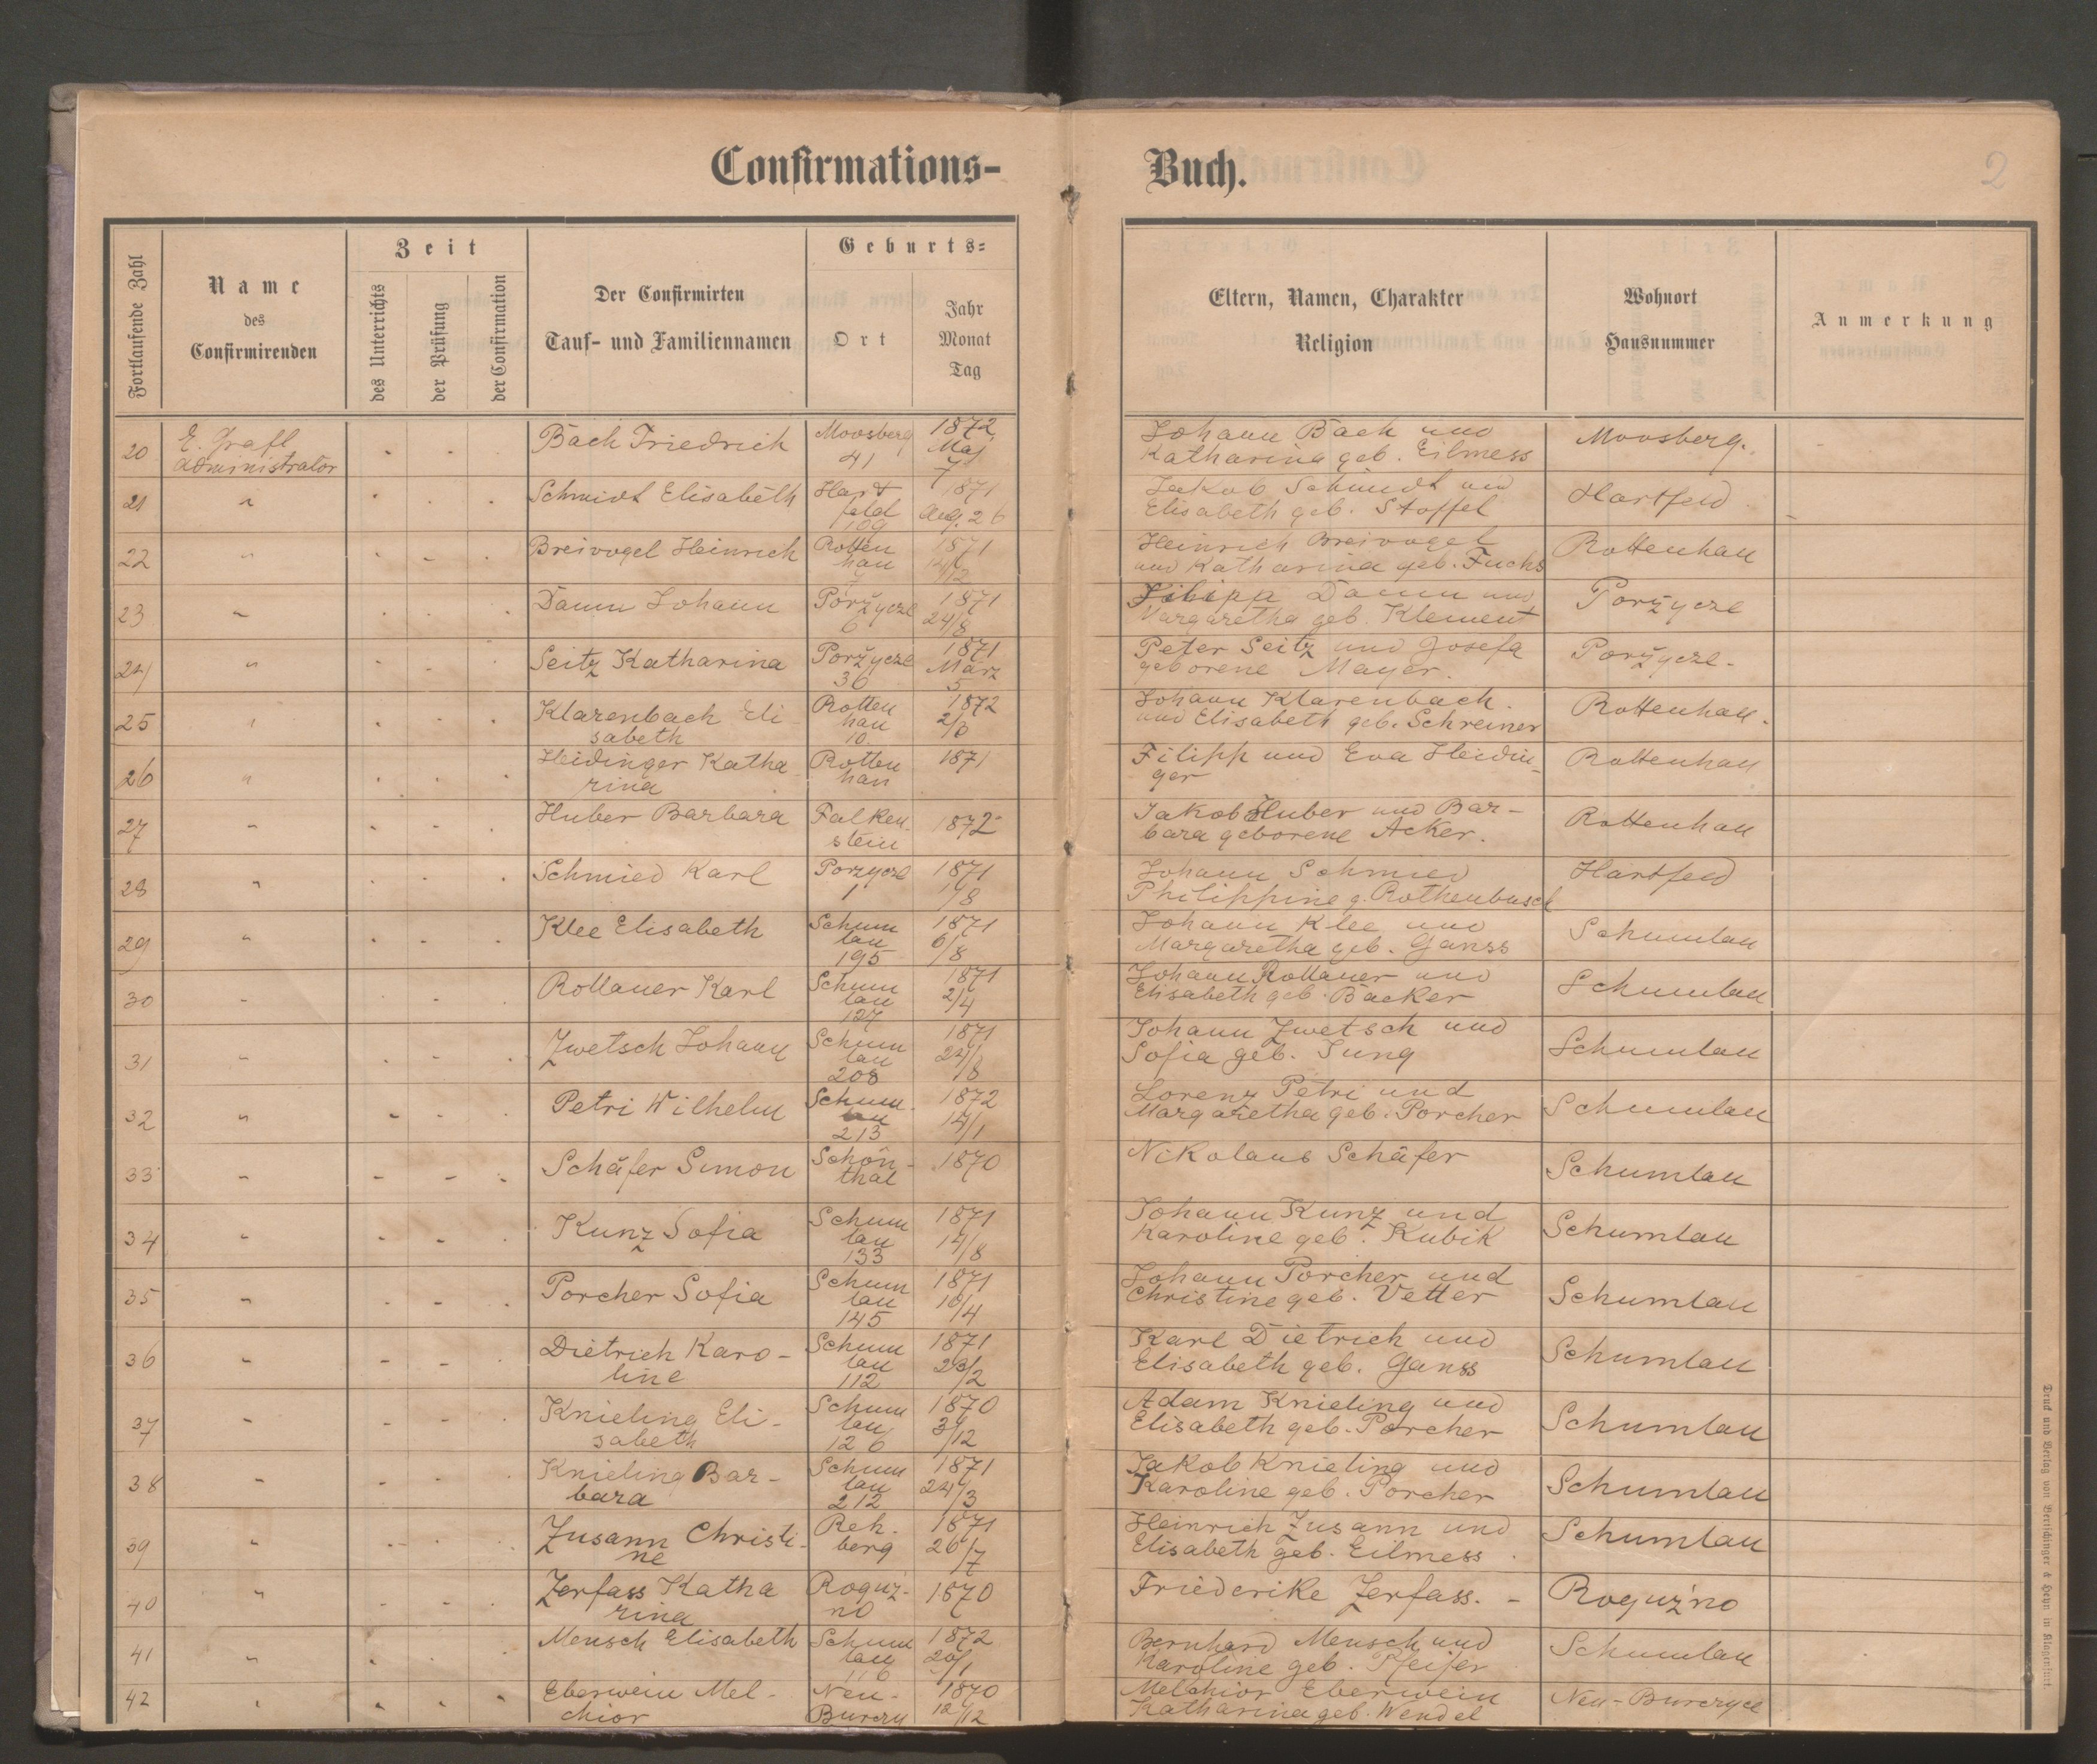 Confirmations-
Buch.
2
Fortlaufende Zahl
Name
des
Confirmirenden
Zeit
des Unterrichts
der Prüfung
der Confirmation
Der Confirmirten
Tauf- und Familiennamen
Geburts-
Ort
Jahr
Monat
Tag
Eltern, Namen, Charakter
Religion
Wohnort
Hausnummer
Anmerkung
20 E. Grafl Administrator Bach Friedrich Moosberg 41 1872 Maj 7 Johann Bach und Katharina geb. Eilmess Moosberg.
21 " Schmidt Elisabeth Hartfeld 109 1871 Aug. 26 Jakob Schmidt und Elisabeth geb. Stoffel Hartfeld
22 " Breivogel Heinrich Rottenhan 1871 Heinrich Breivogel und Katharina geb. Fuchs Rottenhan
23 " Damm Johann Poržycze 6 1871 24/8 Filipp Damm und Margaretha geb. Klement Poržycze
24 " Seitz Katharina Poržycze 36 1871 März 5 Peter Seitz und Josefa geborene Mayer. Poržycze-
25 " Klarenbach Elisabeth Rottenhan 10. 1872 2/3 Johann Klarenbach. und Elisabeth geb. Schreiner Rottenhan.
26 " Heidinger Katharina Rottenhan 1871 Filipp und Eva Heidinger Rottenhan
27 " Huber Barbara Falkenstein 1872 Jakob Huber und Barbara geborene Acker. Rottenhan
28 " Schmied Karl Porzycze 1 1871 1/8 Johann Schmied Philippine g. Rothenbusch Hartfeld
29 " Klee Elisabeth Schumlau 195 1871 6/8 Johann Klee und Margaretha geb. Ganss Schumlau
30 " Rollauer Karl Schumlau 127 1871 2/4 Johann Rollauer und Elisabeth geb. Bäcker Schumlau
31 " Zwetsch Johann Schumlau 208 1871 24/8 Johann Zwetsch und Sofia geb. Jung Schumlau
32 " Petri Wilhelm Schumlau 213 1872 14/1 Lorenz Petri und Margaretha geb. Porcher Schumlau
33 " Schäfer Simon Schönthal 1870 Nikolaus Schäfer Schumlau
34 " Kunz Sofia Schumlau 133 1871 14/8 Johann Kunz und Karoline geb. Kubik Schumlau
35 " Porcher Sofia Schumlau 145 1871 10/4 Johann Porcher und Christine geb. Vetter Schumlau
36 " Dietrich Karoline Schumlau 112 1871 23/2 Karl Dietrich und Elisabeth geb. Ganss Schumlau
37 " Knieling Elisabeth Schumlau 126 1870 3/12 Adam Knieling und Elisabeth geb. Porcher Schumlau
38 " Knieling Barbara Schumlau 212 1871 24/3 Jakob Knieling und Karoline geb. Porcher Schumlau
39 " Zusann Christine Rehberg 1871 26/7 Heinrich Zusann und Elisabeth geb. Eilmess. Schumlau
40 " Zerfass Katharina Roguźno 1870 Friederike Zerfass. - Roguźno
41 " Mensch Elisabeth Schumlau 116 1872 20/1 Bernhard Mensch und Karoline geb. Pfeifer Schumlau
42 " Eberwein Melchior Neu-Burczy 1870 12/12 Melchior Eberwein Katharina geb. Wendel Neu-Burczyce
Druck und Verlag von Bertschinger & Heyn in Klagenfurt.